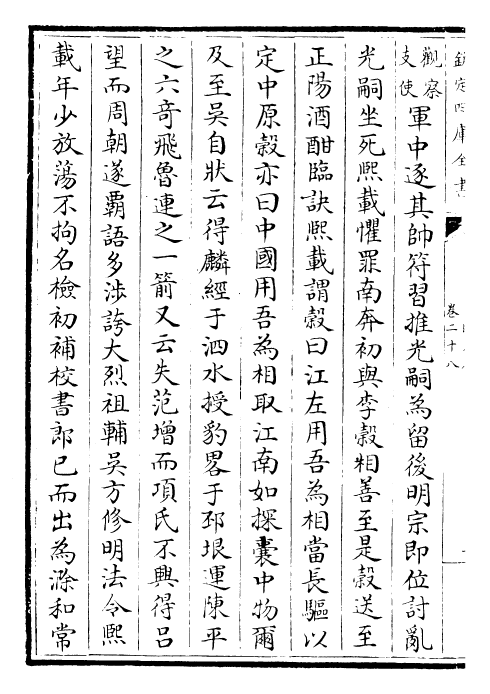 欽定四庫全書
卷二十八
觀察
支使
軍中逐其帥符習推光嗣為留後明宗即位討亂
光嗣坐死熙載懼罪南奔初與李穀相善至是穀送至
正陽酒酣臨訣熙載謂穀曰江左用吾為相當長驅以
定中原穀亦曰中國用吾為相取江南如探囊中物爾
及至吳自狀云得麟經于泗水授豹畧于邳垠運陳平
之六奇飛魯連之一箭又云失范增而項氏不興得呂
望而周朝遂霸語多涉誇大烈祖輔吳方修明法令熙
載年少放蕩不拘名檢初補校書郎已而出為滁和常